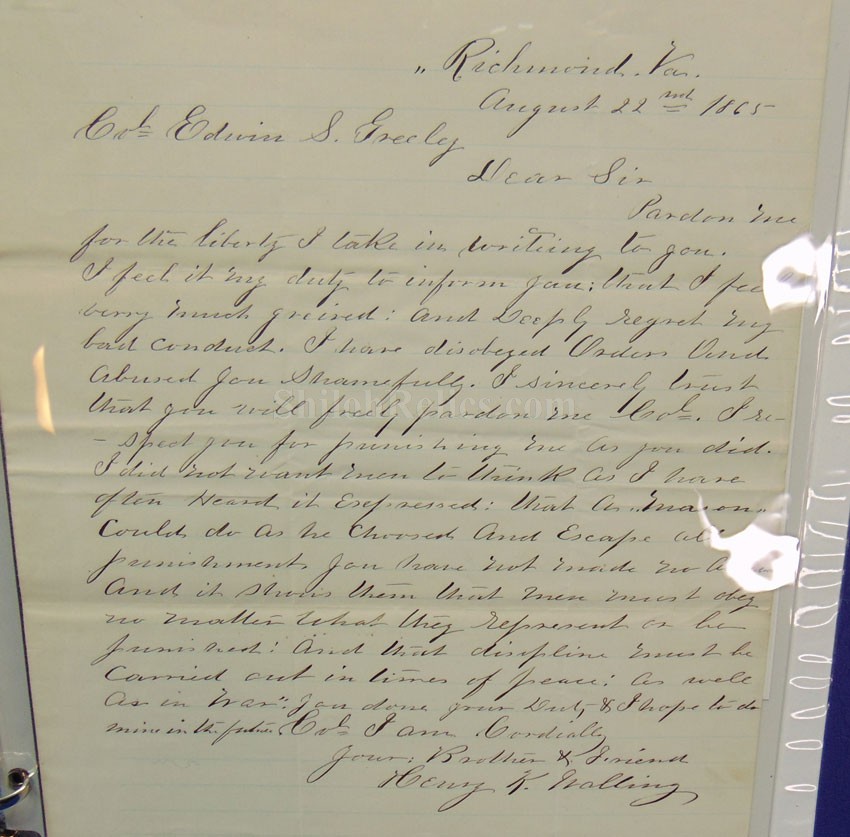 „ Richmond. Va.
August 22nd 1865
Col. Edwin S. Greeley
Dear Sir
Pardon me
for the liberty I take in writing to you.
I feel it my duty to inform you; that I fee
verry much greived: And Deeply regret my
bad conduct. I have disobeyed Orders And
Abused you Shamefully. I sincerely trust
ShilohRelics.com
that you will freely pardon me Col. I re-
- spect you for punishing me as you did.
I did not want men to think as I have
often Heard it Expressed: that a „Mason„
Could do as he Choosed And Escape all
punishment you have not made no
And it shows them that men must obey
no matter what they represent or be
punished: And that discipline must be
Carried out in times of peace: as well
As in War". you done your Duty & I hope to do
mine in the future. Col. I am Cordially
Your; Brother & Friend
Henry K. Walling